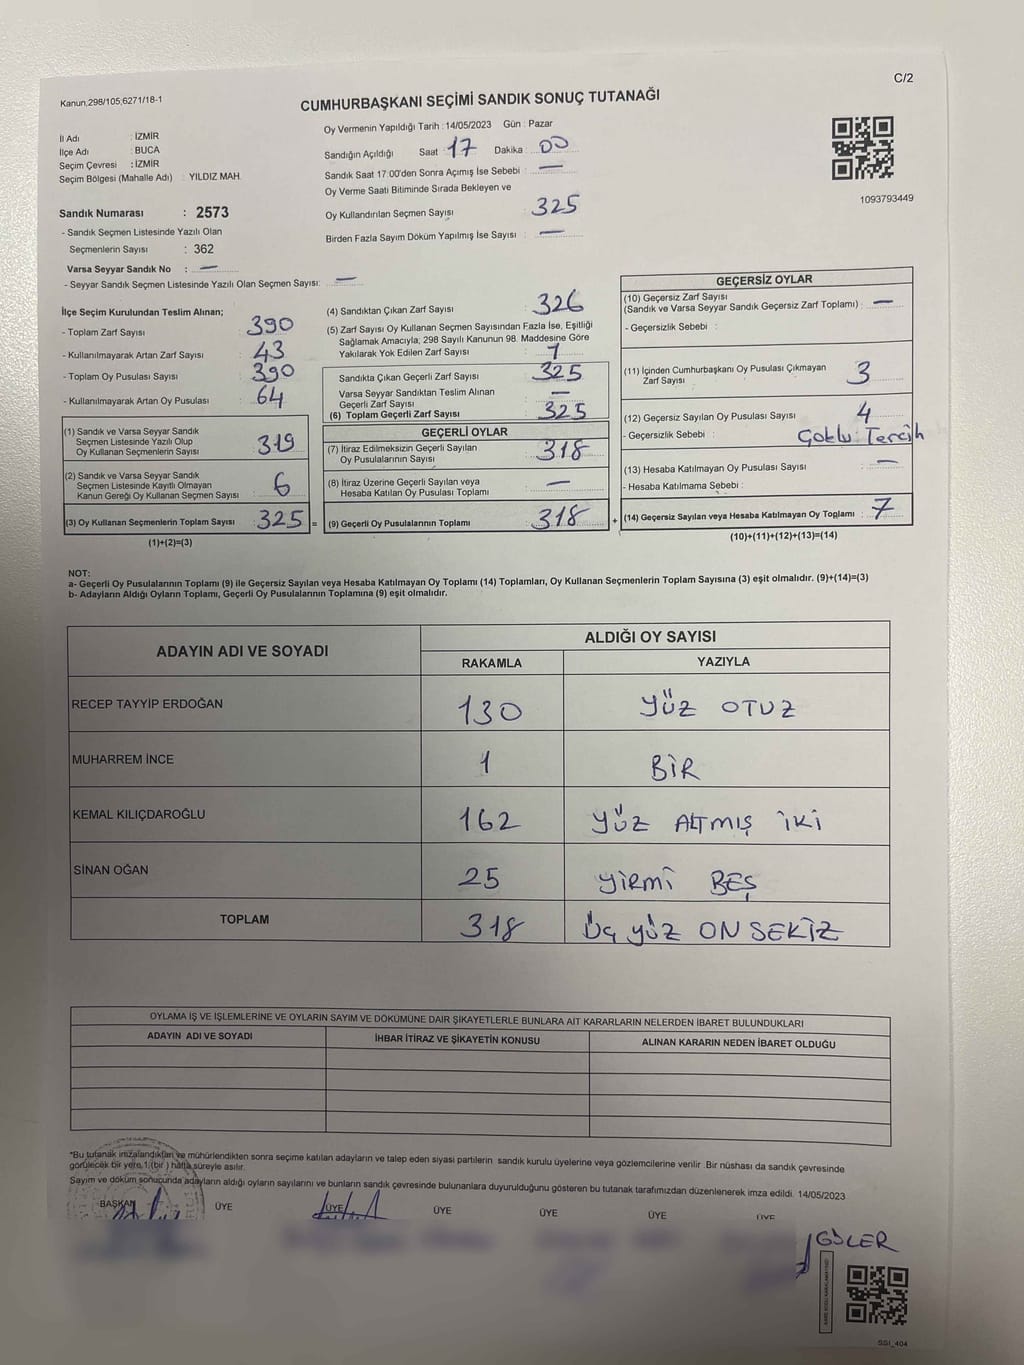 Kanun,298/105,6271/18-1
C/2
CUMHURBAŞKANI SEÇİMİ SANDIK SONUÇ TUTANAĞI
İl Adı : İZMİR
İlçe Adı : BUCA
Seçim Çevresi : İZMİR
Seçim Bölgesi (Mahalle Adı) : YILDIZ MAH.
Sandık Numarası : 2573
- Sandık Seçmen Listesinde Yazılı Olan
Seçmenlerin Sayısı : 362
Varsa Seyyar Sandık No : —
- Seyyar Sandık Seçmen Listesinde Yazılı Olan Seçmen Sayısı: —
Oy Vermenin Yapıldığı Tarih : 14/05/2023 Gün : Pazar
Sandığın Açıldığı Saat : 17 Dakika : 00
Sandık Saat 17:00'den Sonra Açımış İse Sebebi : —
Oy Verme Saati Bitiminde Sırada Bekleyen ve
Oy Kullandırılan Seçmen Sayısı : 325
Birden Fazla Sayım Döküm Yapılmış İse Sayısı : —
1093793449
İlçe Seçim Kurulundan Teslim Alınan;
- Toplam Zarf Sayısı : 390
- Kullanılmayarak Artan Zarf Sayısı : 43
- Toplam Oy Pusulası Sayısı : 390
- Kullanılmayarak Artan Oy Pusulası : 64
(1) Sandık ve Varsa Seyyar Sandık
Seçmen Listesinde Yazılı Olup
Oy Kullanan Seçmenlerin Sayısı : 319
(2) Sandık ve Varsa Seyyar Sandık
Seçmen Listesinde Kayıtlı Olmayan
Kanun Gereği Oy Kullanan Seçmen Sayısı : 6
(3) Oy Kullanan Seçmenlerin Toplam Sayısı : 325 =
(1)+(2)=(3)
(4) Sandıktan Çıkan Zarf Sayısı : 326
(5) Zarf Sayısı Oy Kullanan Seçmen Sayısından Fazla İse, Eşitliği
Sağlamak Amacıyla; 298 Sayılı Kanunun 98. Maddesine Göre
Yakılarak Yok Edilen Zarf Sayısı : 1
Sandıkta Çıkan Geçerli Zarf Sayısı : 325
Varsa Seyyar Sandıktan Teslim Alınan
Geçerli Zarf Sayısı : —
(6) Toplam Geçerli Zarf Sayısı : 325
GEÇERLİ OYLAR
(7) İtiraz Edilmeksizin Geçerli Sayılan
Oy Pusulalarının Sayısı : 318
(8) İtiraz Üzerine Geçerli Sayılan veya
Hesaba Katılan Oy Pusulası Toplamı : —
(9) Geçerli Oy Pusulalarının Toplamı : 318 +
GEÇERSİZ OYLAR
(10) Geçersiz Zarf Sayısı
(Sandık ve Varsa Seyyar Sandık Geçersiz Zarf Toplamı) : —
- Geçersizlik Sebebi :
(11) İçinden Cumhurbaşkanı Oy Pusulası Çıkmayan
Zarf Sayısı : 3
(12) Geçersiz Sayılan Oy Pusulası Sayısı : 4
- Geçersizlik Sebebi : Çoklu Tercih
(13) Hesaba Katılmayan Oy Pusulası Sayısı : —
- Hesaba Katılmama Sebebi :
(14) Geçersiz Sayılan veya Hesaba Katılmayan Oy Toplamı : 7
(10)+(11)+(12)+(13)=(14)
NOT:
a- Geçerli Oy Pusulalarının Toplamı (9) ile Geçersiz Sayılan veya Hesaba Katılmayan Oy Toplamı (14) Toplamları, Oy Kullanan Seçmenlerin Toplam Sayısına (3) eşit olmalıdır. (9)+(14)=(3)
b- Adayların Aldığı Oyların Toplamı, Geçerli Oy Pusulalarının Toplamına (9) eşit olmalıdır.
ADAYIN ADI VE SOYADI
ALDIĞI OY SAYISI
RAKAMLA YAZIYLA
RECEP TAYYİP ERDOĞAN 130 YÜZ OTUZ
MUHARREM İNCE 1 BİR
KEMAL KILIÇDAROĞLU 162 YÜZ ALTMIŞ İKİ
SİNAN OĞAN 25 YİRMİ BEŞ
TOPLAM 318 ÜÇ YÜZ ON SEKİZ
OYLAMA İŞ VE İŞLEMLERİNE VE OYLARIN SAYIM VE DÖKÜMÜNE DAİR ŞİKAYETLERLE BUNLARA AİT KARARLARIN NELERDEN İBARET BULUNDUKLARI
ADAYIN ADI VE SOYADI İHBAR İTİRAZ VE ŞİKAYETİN KONUSU ALINAN KARARIN NEDEN İBARET OLDUĞU
*Bu tutanak imzalandıktan ve mühürlendikten sonra seçime katılan adayların ve talep eden siyasi partilerin sandık kurulu üyelerine veya gözlemcilerine verilir .Bir nüshası da sandık çevresinde
görülecek bir yere 1 (bir ) hafta süreyle asılır.
Sayım ve döküm sonucunda adayların aldığı oyların sayılarını ve bunların sandık çevresinde bulunanlara duyurulduğunu gösteren bu tutanak tarafımızdan düzenlenerek imza edildi. 14/05/2023
BAŞKAN ÜYE ÜYE ÜYE ÜYE ÜYE ÜYE
GÜLER
SSI_404